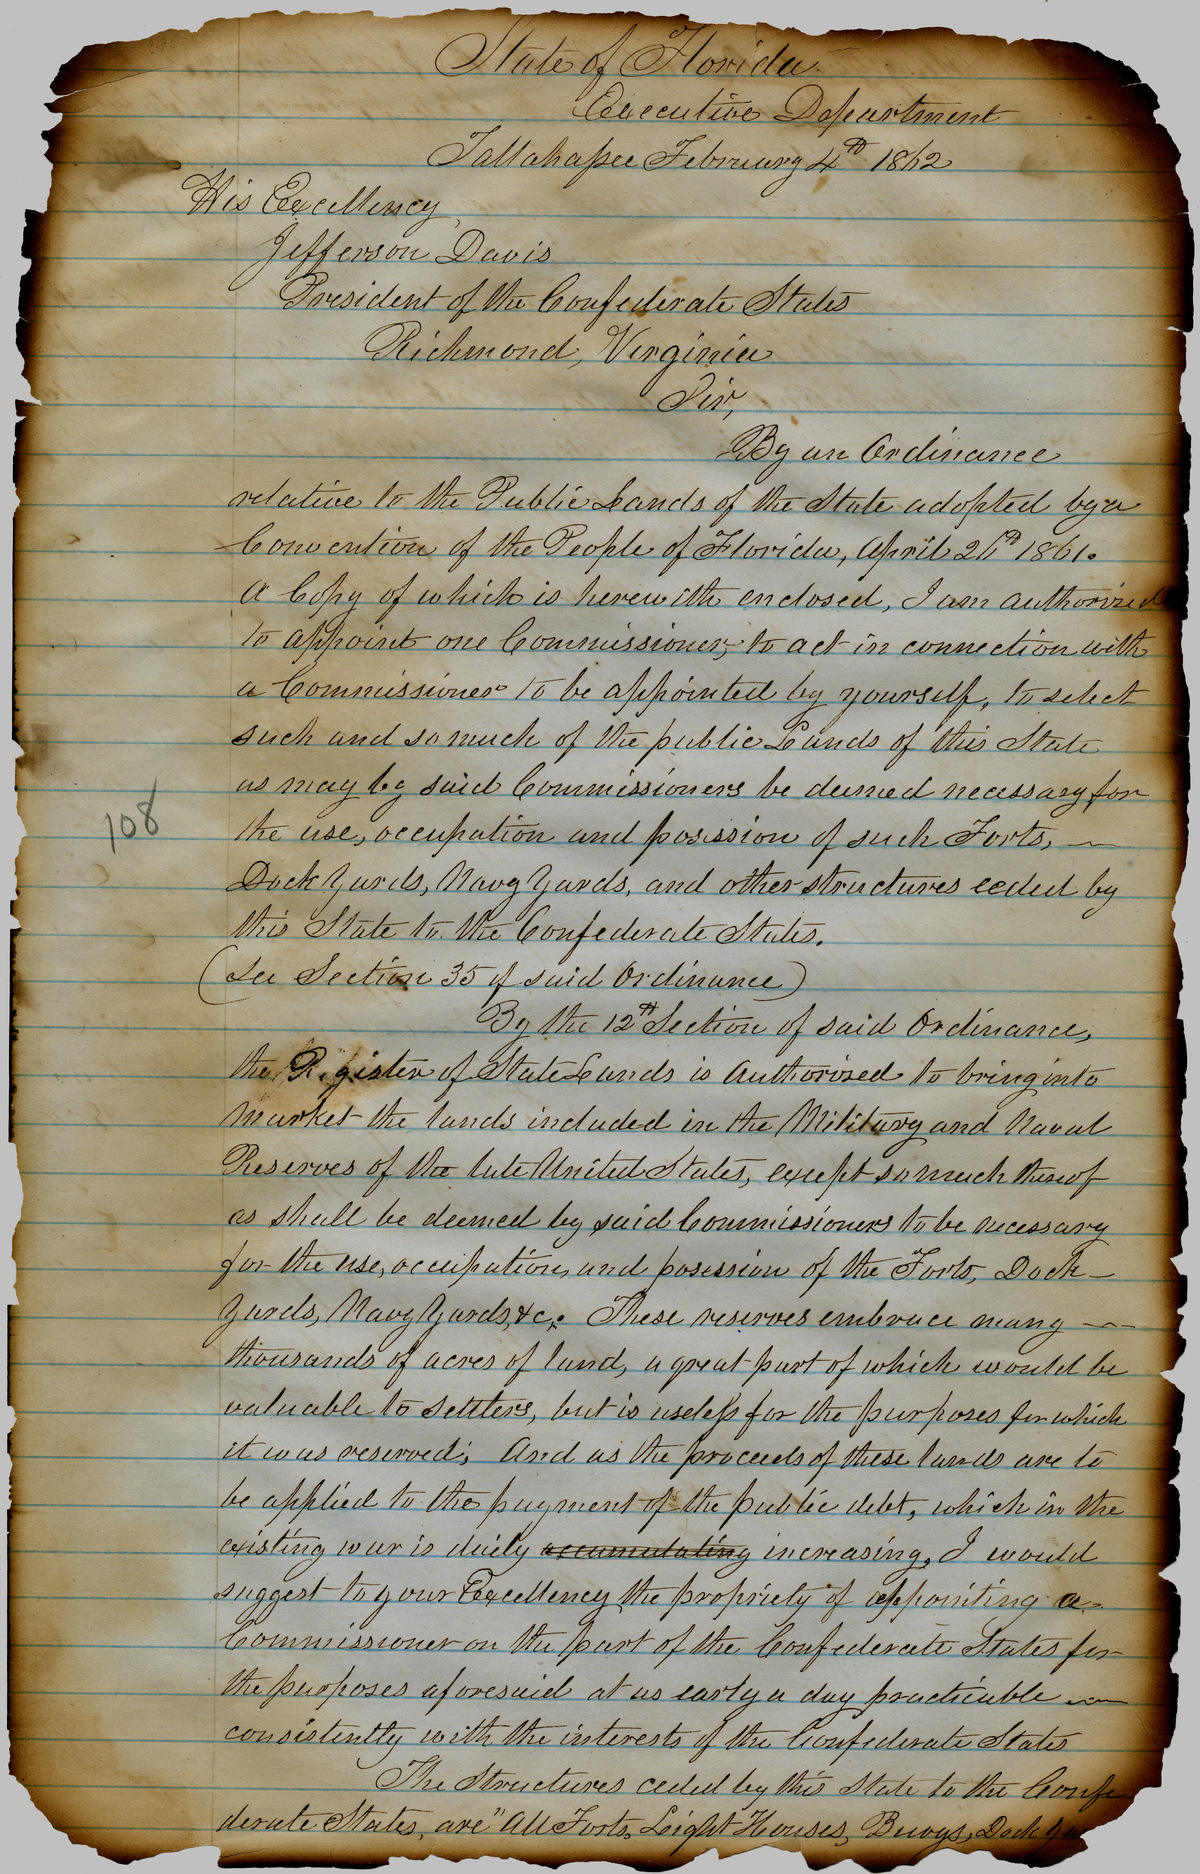 State of Florida
Executive Department
Tallahassee February 4th 1862
His Excellency
Jefferson Davis
President of the Confederate States
Richmond, Virginia
Sir,
By an Ordinance
relative to the Public Lands of the State adopted by a
Convention of the People of Florida, April 26th 1861.
A Copy of which is herewith enclosed, I am authorized
to appoint one Commissioner, to act in connection with
a Commissioner to be appointed by yourself, to select
such and so much of the public Lands of this State
as may by said Commissioners be deemed necessary for
the use, occupation and posession of such Forts, —
Dock Yards, Navy Yards, and other structures ceded by
this State to the Confederate States.
(See Section 35 of said Ordinance)
By the 12th Section of said Ordinance,
the Register of State Lands is authorised to bring into
Market the lands included in the Military and Naval
Reserves of the late United States, except so much thereof
as shall be deemed by said Commissioners to be necessary
for the use, occupation, and posession of the Forts, Dock—
Yards, Navy Yards, &c,. These reserves embrace many —
thousands of acres of land, a great part of which would be
valuable to settlers, but is useless for the purposes for which
it was reserved; And as the proceeds of these lands are to
be applied to the payment of the public debt, which in the
existing war is daily accumulating increasing, I would
suggest to your Excellency the propriety of appointing a-
Commissioner on the part of the Confederate States for
the purposes aforesaid at as early a day practicable —
consistently with the interests of the Confederate States
The Structures ceded by this State to the Confe
derate States, are "All Forts, Light Houses, Buoys, Dock
108